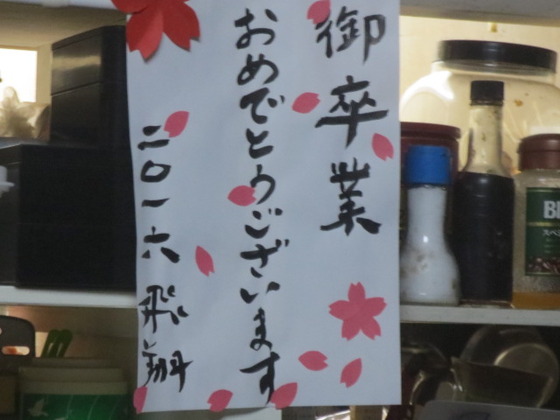 御卒業
おめでとうございます
二〇一六 飛翔
Bl
スペ